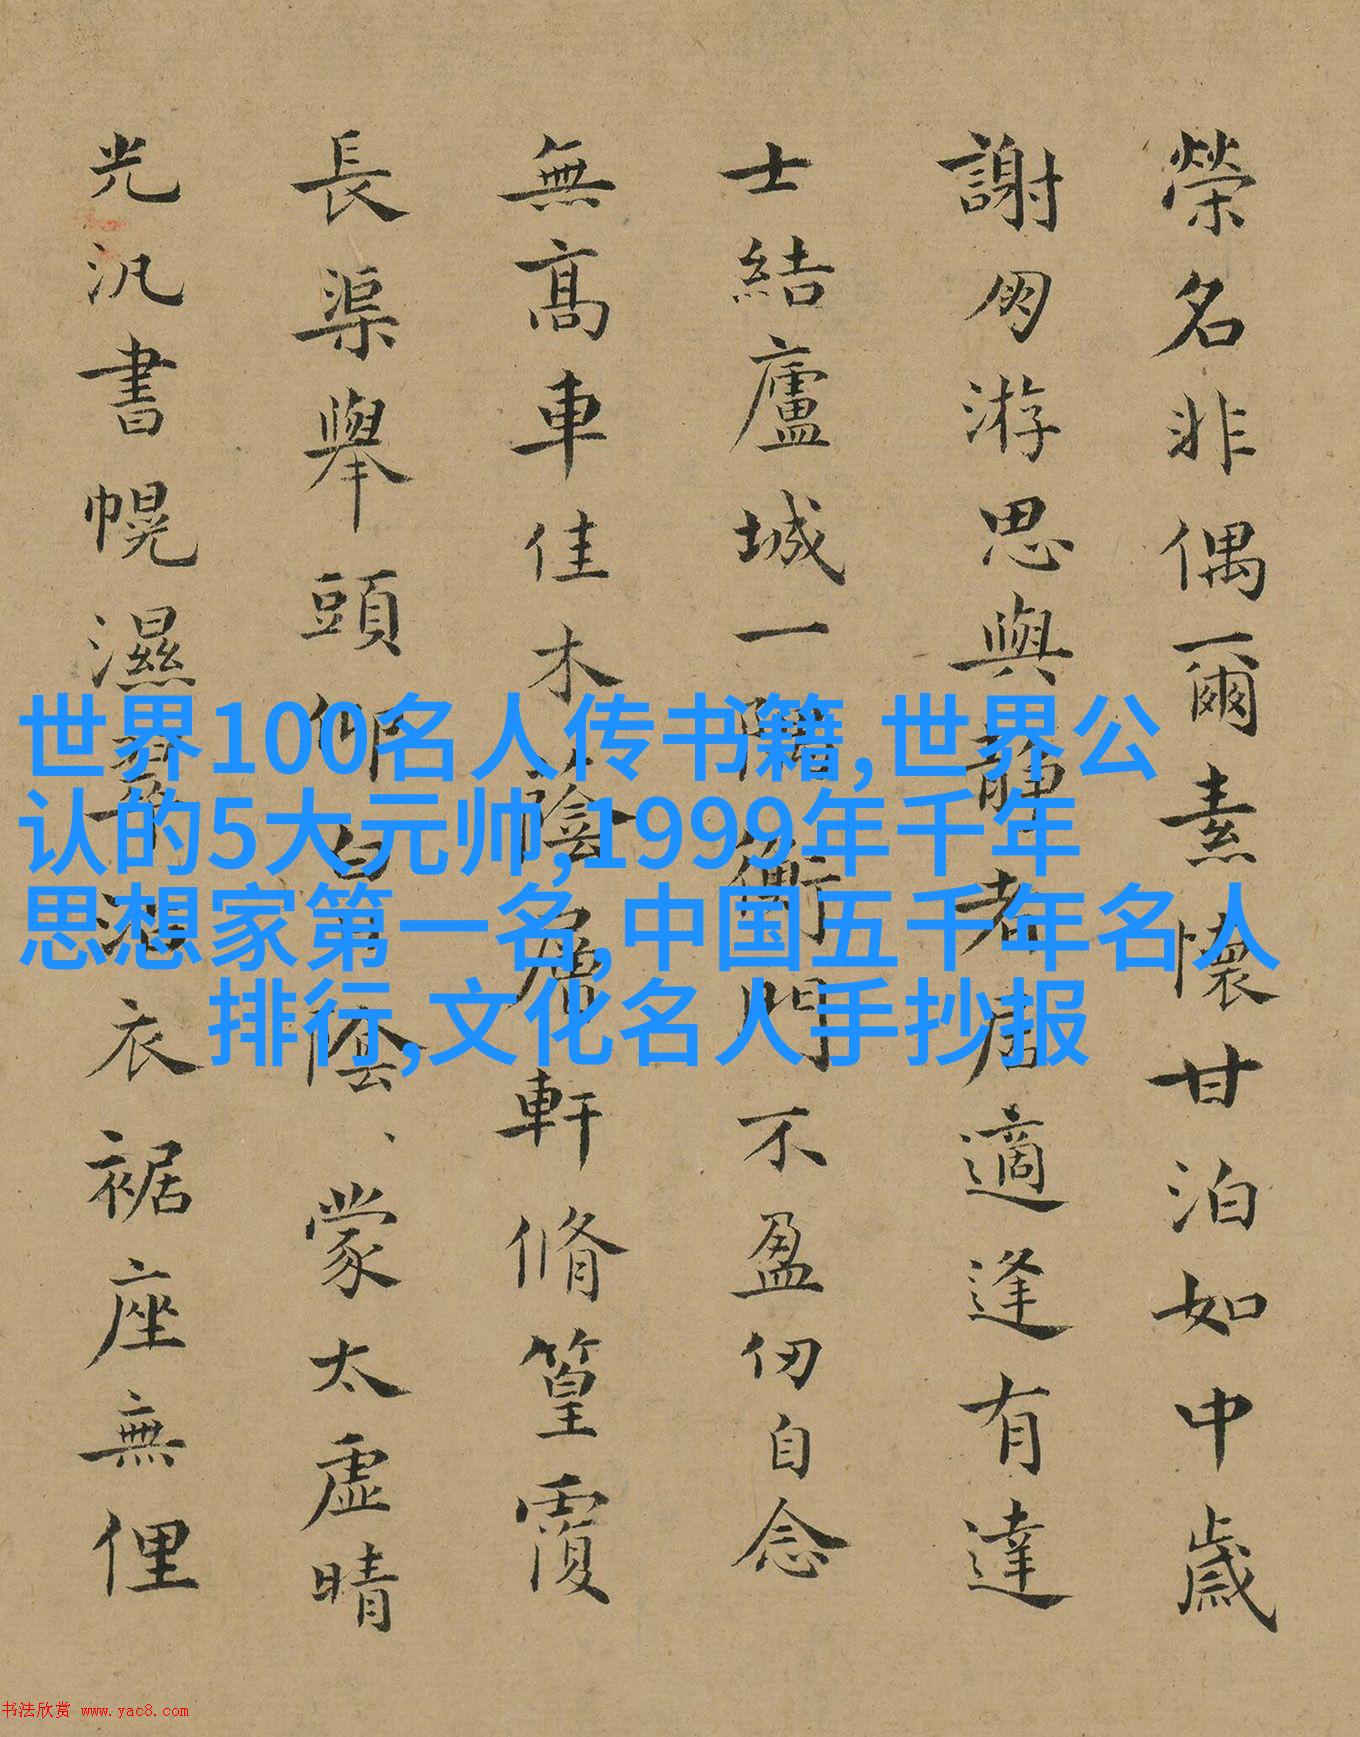 榮名非偶爾素懷甘泊如中歲
謝勿游思與靜者居適逢有達
士結廬城一隅衡門不盈仞自念
無髙車佳木蔭層軒脩篁覆
長渠舉頭仰白日陰蒙太虛晴
光汎書幌濕翠沾衣裾座無俚
世界100名人传书籍,世界公
认的5大元帅,1999年千年
思想家第一名,中国五千年名人
排行,文化名人手抄报
书法欣赏 www.yac8.com